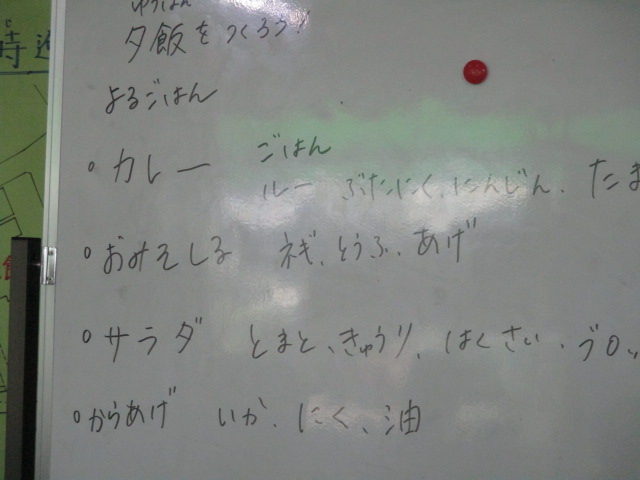 ゆうはん
夕飯をつくろう!
よるごはん
・カレー ごはん
ルー ぶたにく、にんじん、たま
・おみそしる ネギ、とうふ、あげ
・サラダ とまと、きゅうり、はくさい、ブロッ
・からあげ いか、にく、油
時